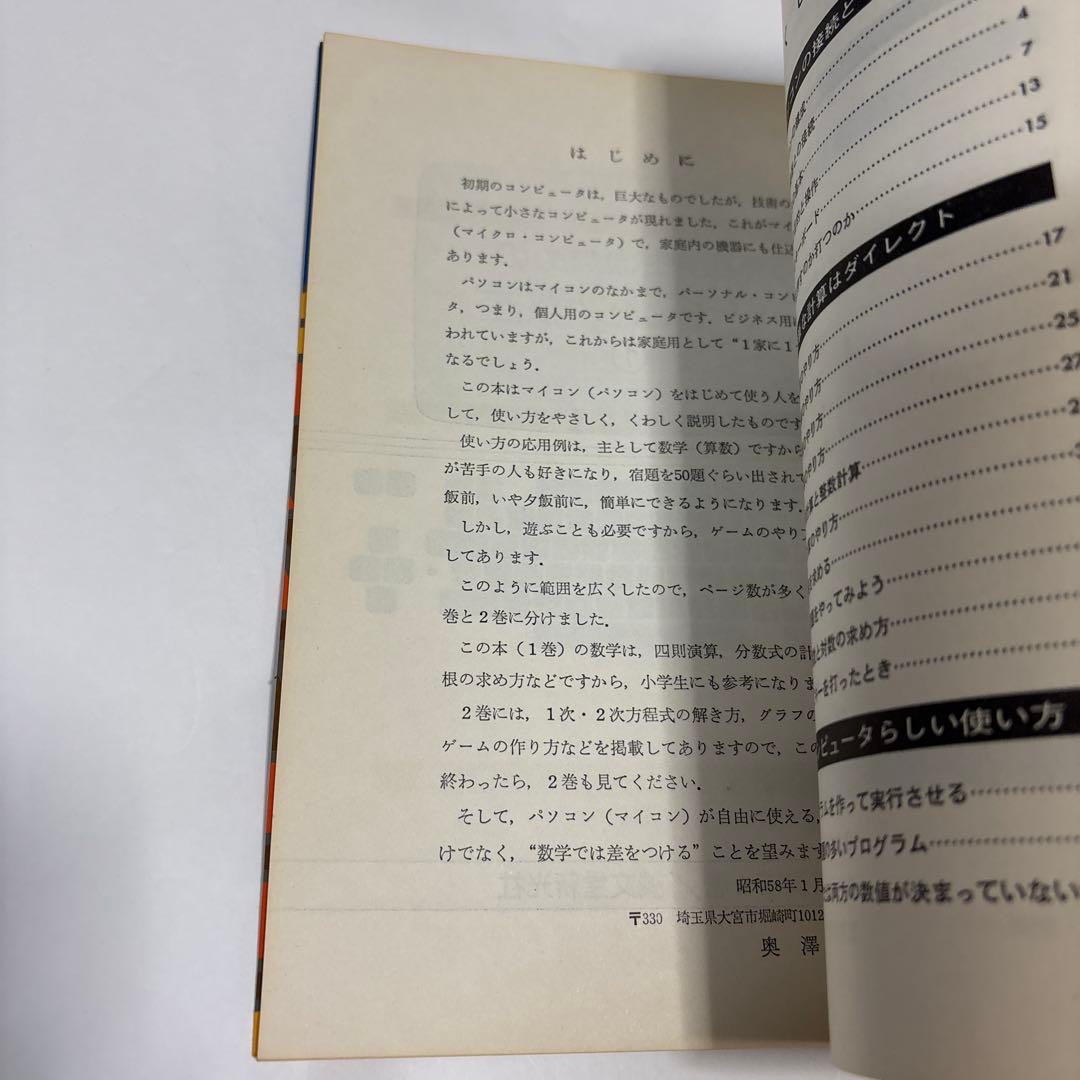 はじめに
初期のコンピュータは，巨大なものでしたが，技術の
によって小さなコンピュータが現れました．これがマイ
（マイクロ・コンピュータ）で，家庭内の機器にも仕込
あります．
パソコンはマイコンのなかまで，パーソナル・コンピ
タ，つまり，個人用のコンピュータです．ビジネス用に
われていますが，これからは家庭用として“1家に1
なるでしょう．
この本はマイコン（パソコン）をはじめて使う人を
して，使い方をやさしく，くわしく説明したものです
使い方の応用例は，主として数学（算数）ですから
が苦手の人も好きになり，宿題を50題ぐらい出されて
飯前，いや夕飯前に，簡単にできるようになります．
しかし，遊ぶことも必要ですから，ゲームのやり
してあります．
このように範囲を広くしたので，ページ数が多く
巻と2巻に分けました．
この本（1巻）の数学は，四則演算，分数式の計
根の求め方などですから，小学生にも参考になりま
2巻には，1次・2次方程式の解き方，グラフの
ゲームの作り方などを掲載してありますので，この
終わったら，2巻も見てください．
そして，パソコン（マイコン）が自由に使える，
けでなく，“数学では差をつける”ことを望みます
昭和58年1月
〒330 埼玉県大宮市堀崎町1012
奥澤
ンの接続と
4
の接続……7
13
と操作……15
ーボード
すのか打つのか
な計算はダイレクト
17
のやり方……21
のやり方……25
のやり方……27
のやり方……2
算と整数計算
のやり方
を求める
をやってみよう
と対数の求め方
ーを打ったとき
ピュータらしい使い方
ラムを作って実行させる
の多いプログラム
は両方の数値が決まっていない